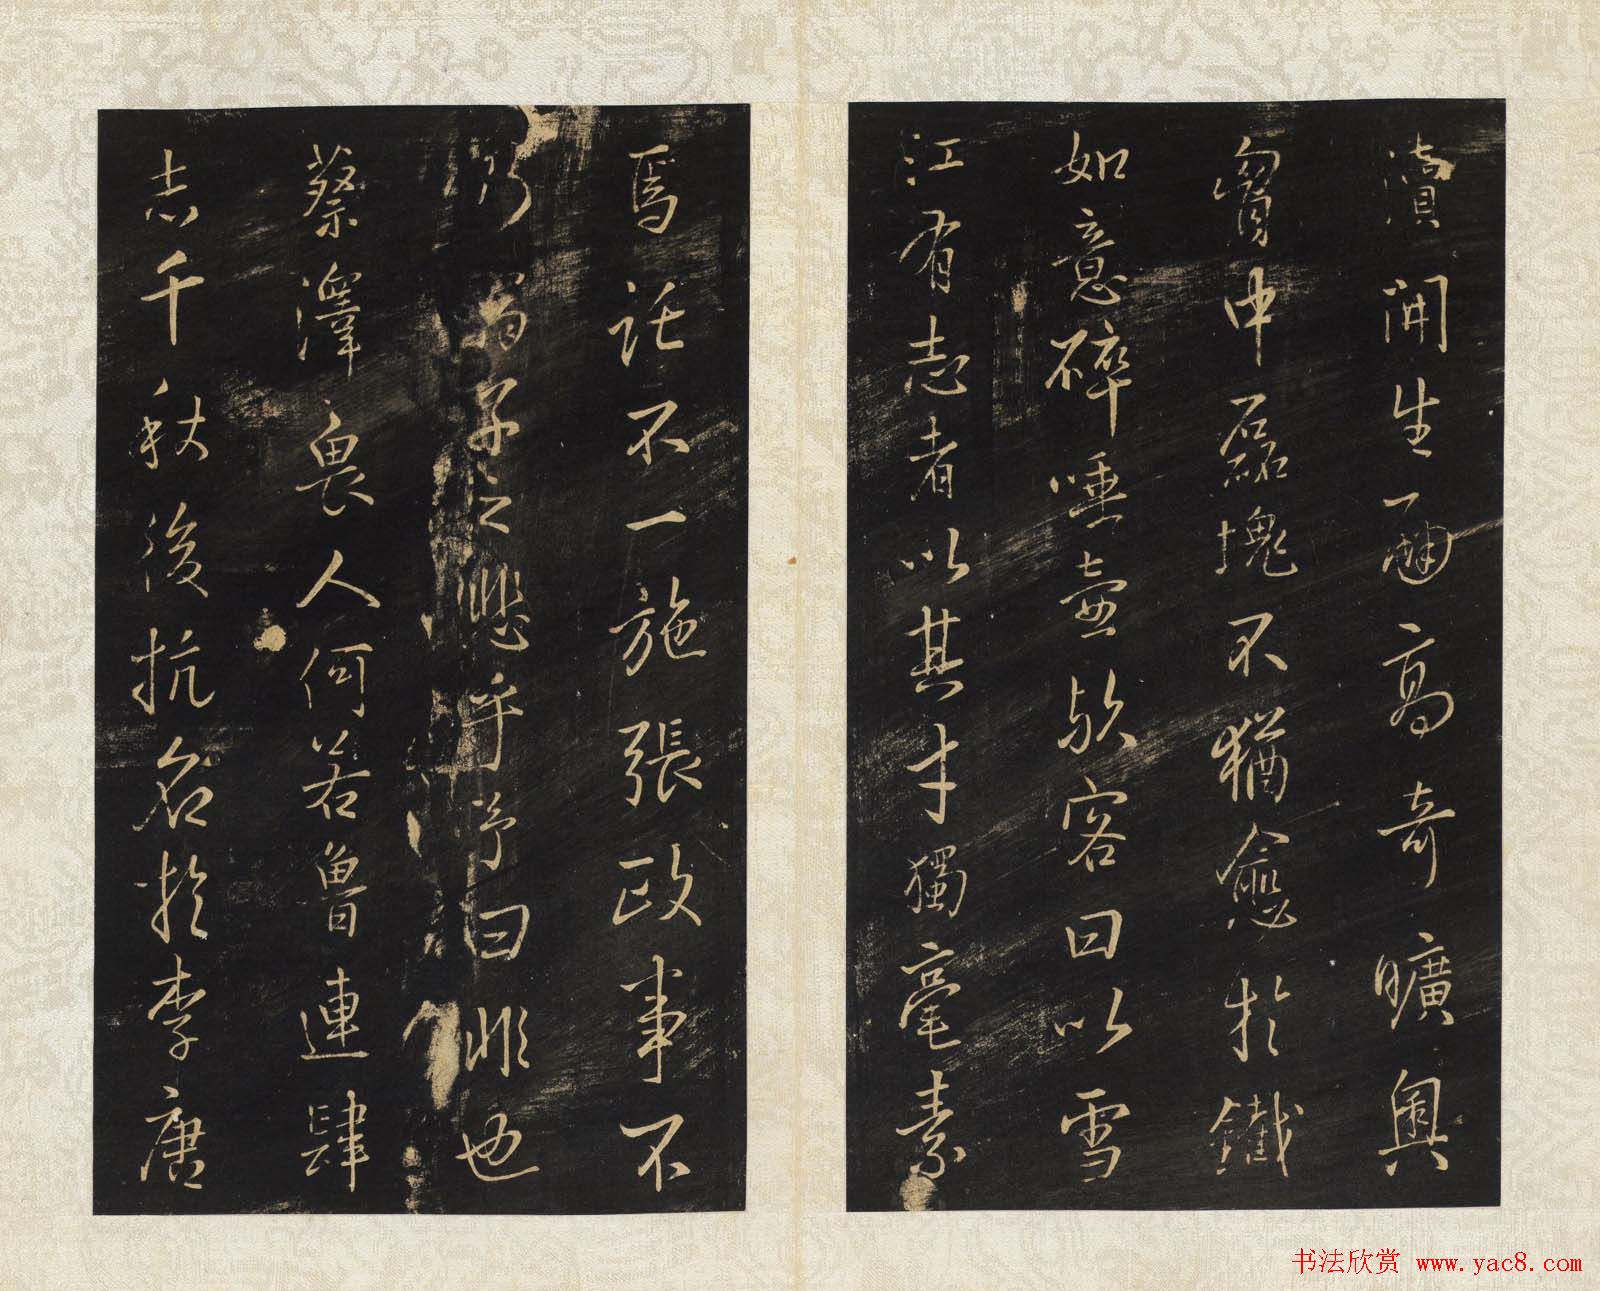 濆開生一面高奇曠奧
胷中磊塊不猶愈於鐵
如意碎唾壺歟客曰以雪
江有志者以其才獨毫素
焉託不一施張政事不
乃翁子之悲乎予曰非也
蔡澤畏人何若魯連肆
志千秋後抗名於李唐
书法欣赏 www.yac8.com